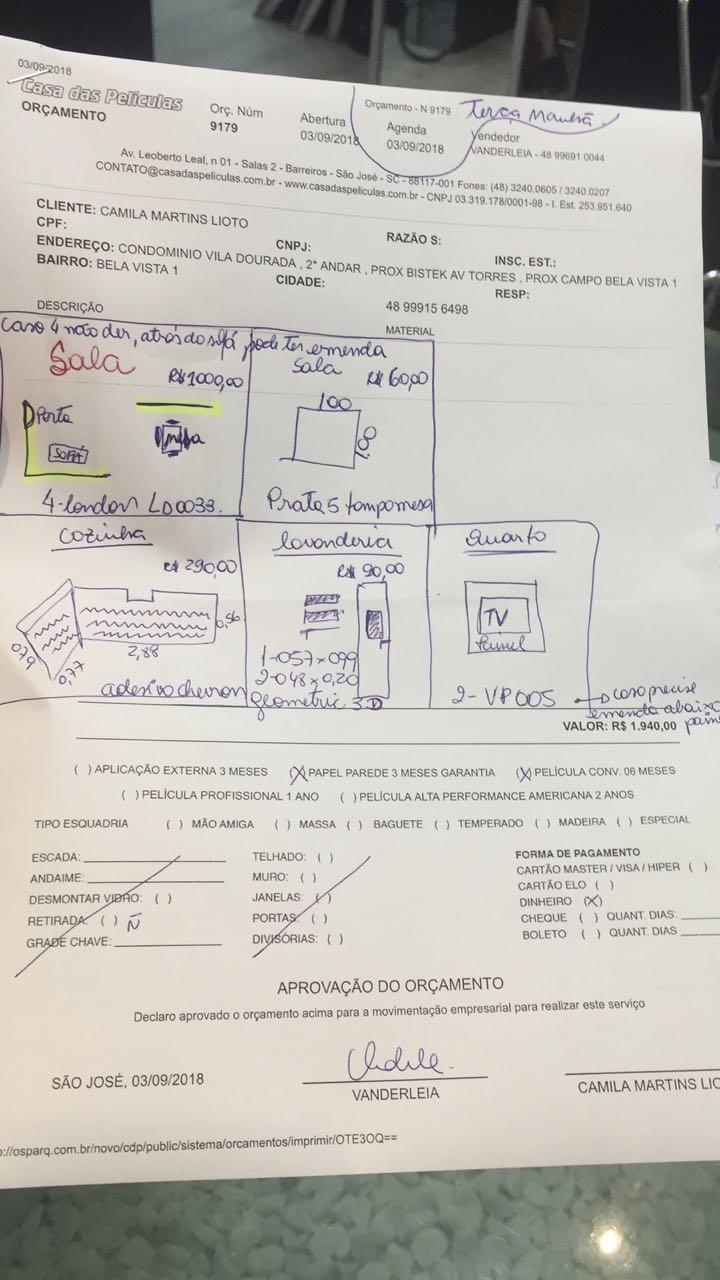 03/09/2018
Casa das Peliculas
ORÇAMENTO
Orç. Núm
9179
Abertura
03/09/2018
Orçamento - N 9179
Terça Manhã
Agenda
03/09/2018
Vendedor
VANDERLEIA - 48 99691 0044
Av. Leoberto Leal, n 01 - Salas 2 - Barreiros - São José - SC - 88117-001 Fones: (48) 3240.0605 / 3240.0207
CONTATO@casadaspeliculas.com.br - www.casadaspeliculas.com.br - CNPJ 03.319.178/0001-98 - I. Est. 253.951.640
CLIENTE: CAMILA MARTINS LIOTO
CPF: CNPJ: RAZÃO S: INSC. EST.:
ENDEREÇO: CONDOMINIO VILA DOURADA , 2ª ANDAR , PROX BISTEK AV TORRES , PROX CAMPO BELA VISTA 1
BAIRRO: BELA VISTA 1 CIDADE: RESP:
48 99915 6498
DESCRIÇÃO MATERIAL
Caso 4 não der, atrás do sofá pode ter emenda
Sala
R$ 1000,00
Porta
SOFÁ
mesa
4-london LD0033.
Sala
R$ 60,00
100
100
Prata 5 tampo mesa
Cozinha
R$ 290,00
0,56
2,88
0,77
079
adesivo chevron
lavanderia
R$ 90,00
1-057x099
2-048x0,20
geometric 3D
Quarto
TV
Painel
2-VP005 → caso precise
emenda abaixo
VALOR: R$ 1.940,00
( ) APLICAÇÃO EXTERNA 3 MESES (X) PAPEL PAREDE 3 MESES GARANTIA (X) PELÍCULA CONV. 06 MESES
( ) PELÍCULA PROFISSIONAL 1 ANO ( ) PELÍCULA ALTA PERFORMANCE AMERICANA 2 ANOS
TIPO ESQUADRIA ( ) MÃO AMIGA ( ) MASSA ( ) BAGUETE ( ) TEMPERADO ( ) MADEIRA ( ) ESPECIAL
ESCADA:
ANDAIME:
DESMONTAR VIDRO: ( )
RETIRADA: ( ) Ñ
GRADE CHAVE:
TELHADO: ( )
MURO: ( )
JANELAS: ( )
PORTAS: ( )
DIVISÓRIAS: ( )
FORMA DE PAGAMENTO
CARTÃO MASTER / VISA / HIPER ( )
CARTÃO ELO ( )
DINHEIRO (X)
CHEQUE ( ) QUANT. DIAS:
BOLETO ( ) QUANT. DIAS
APROVAÇÃO DO ORÇAMENTO
Declaro aprovado o orçamento acima para a movimentação empresarial para realizar este serviço
SÃO JOSÉ, 03/09/2018
VANDERLEIA
CAMILA MARTINS LIO
p://osparq.com.br/novo/cdp/public/sistema/orcamentos/imprimir/OTE3OQ==